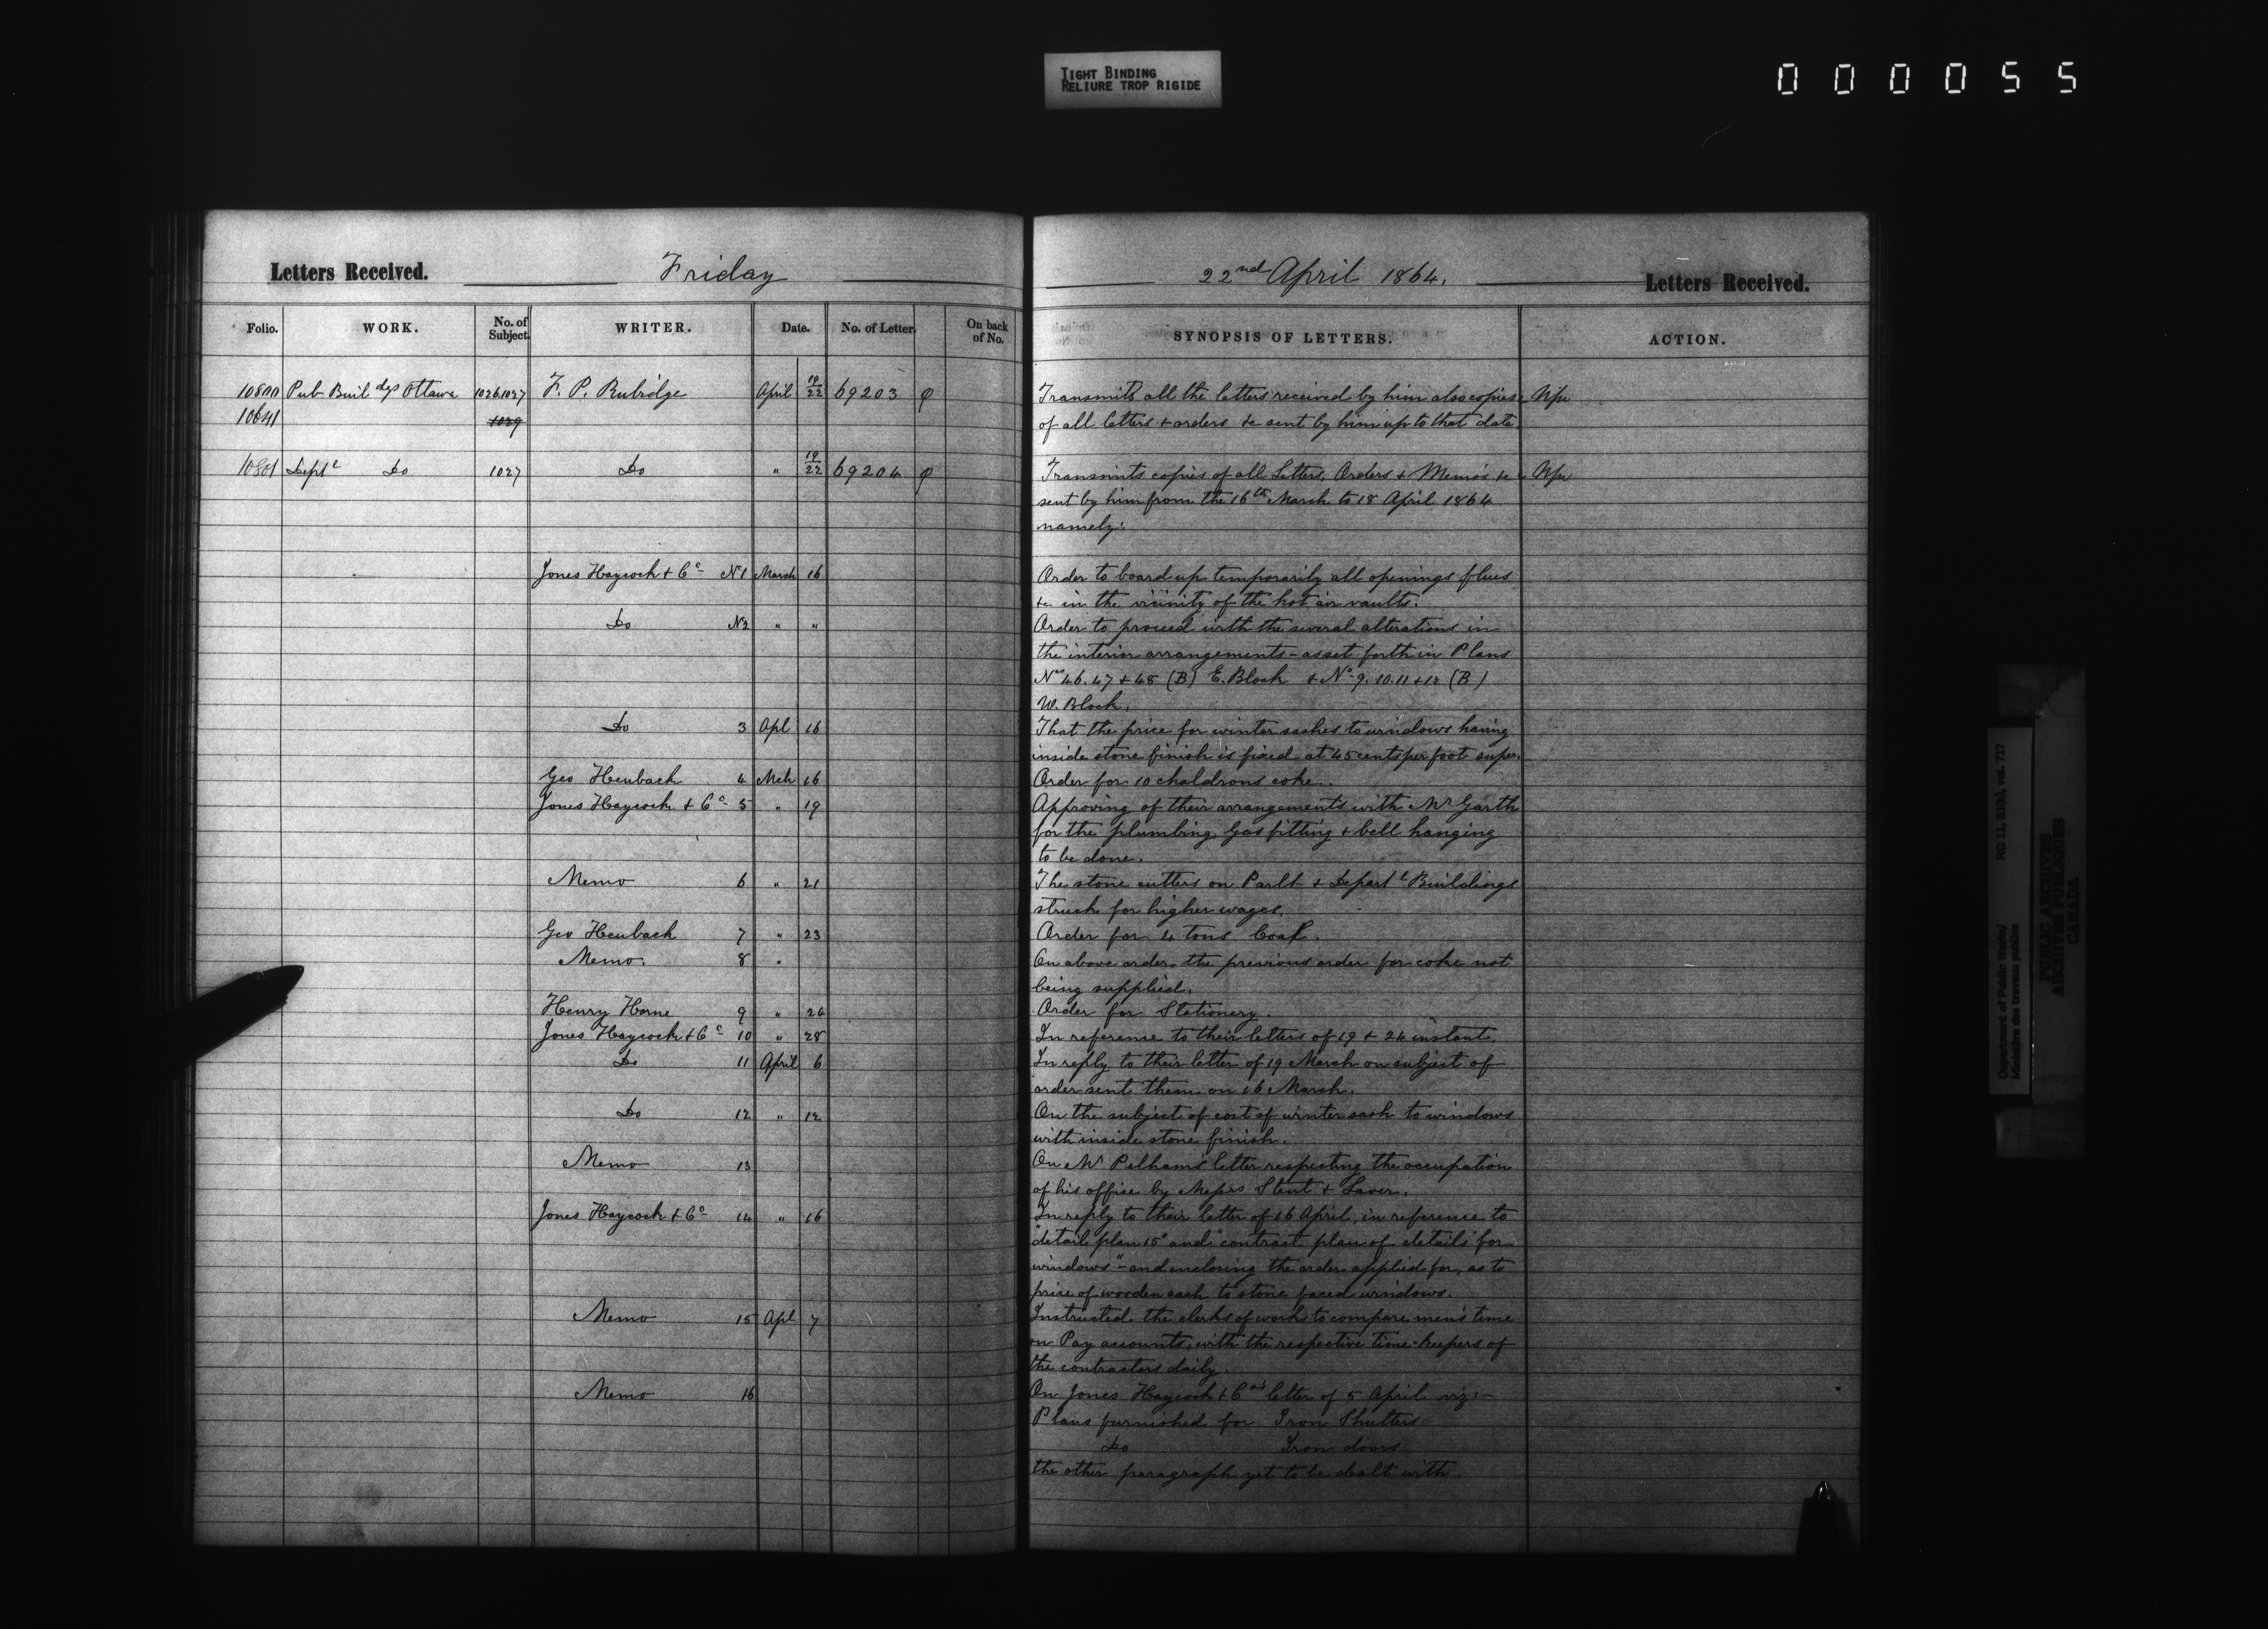 TIGHT BINDING
RELIURE TROP RIGIDE
000055
Letters Received. Friday
22nd April 1864. Letters Received.
Folio. WORK. No. of Subject. WRITER. Date. No. of Letter. On back of No.
SYNOPSIS OF LETTERS. ACTION.
10800 Pub Buildgs Ottawa 1026.1027 F. P. Rubidge April 19/22 69203 φ
10641 1029
Transmits all the letters received by him also copies
of all letters + orders &c sent by him up to that date
10801 Deptl Do 1027 Do " 19/22 69204 φ
Transmits copies of all Letters, Orders + Memo's &c
sent by him from the 16th March to 18 April 1864
namely:
Jones Haycock + Co No 1 March 16
Order to board up temporarily all openings flues
&c in the vicinity of the hot air vaults.
Do No 2 " "
Order to proceed with the several alterations in
the interior arrangements - as set forth in Plans
Nos 46. 47 + 48 (B) E. Block & No 9. 10. 11 + 12 (B)
W. Block.
Do 3 Apl 16
That the price for winter sashes to windows having
inside stone finish is fixed at 45 cents per foot super.
Geo Heubach 4 Mch 16
Order for 10 chaldrons coke.
Jones Haycock + Co 5 " 19
Approving of their arrangements with Mr Garth
for the plumbing, Gas fitting + bell hanging
to be done.
Memo 6 " 21
The stone cutters on Parlt + Departl Buildings
struck for higher wages.
Geo Heubach 7 " 23
Order for 4 tons Coal.
Memo. 8 "
On above order, the previous order for coke not
being supplied.
Henry Horne 9 " 24
Order for Stationery.
Jones Haycock + Co 10 " 28
In reference to their letters of 19 + 24 instant.
Do 11 April 6
In reply to their letter of 19 March on subject of
order sent them on 16 March.
Do 12 " 12
On the subject of cost of winter sash to windows
with inside stone finish.
Memo 13
On Mr Pelham's letter respecting the occupation
of his office by Messrs Stent + Laver.
Jones Haycock + Co 14 " 16
In reply to their letter of 16 April, in reference to
"detail plan 15" and "contract plan of details for
windows" - and enclosing the order applied for, as to
price of wooden sash to stone faced windows.
Memo 15 Apl 7
Instructed the clerks of works to compare men's time
on Pay accounts, with the respective time-keepers of
the contractors daily.
Memo 16
On Jones Haycock + Co's letter of 5 April viz:-
Plans furnished for Iron Shutters
Do Iron doors
the other paragraph yet to be dealt with.
Department of Public Works/
Ministère des travaux publics
RG 11, B1(b), vol. 717
PUBLIC ARCHIVES
ARCHIVES PUBLIQUES
CANADA